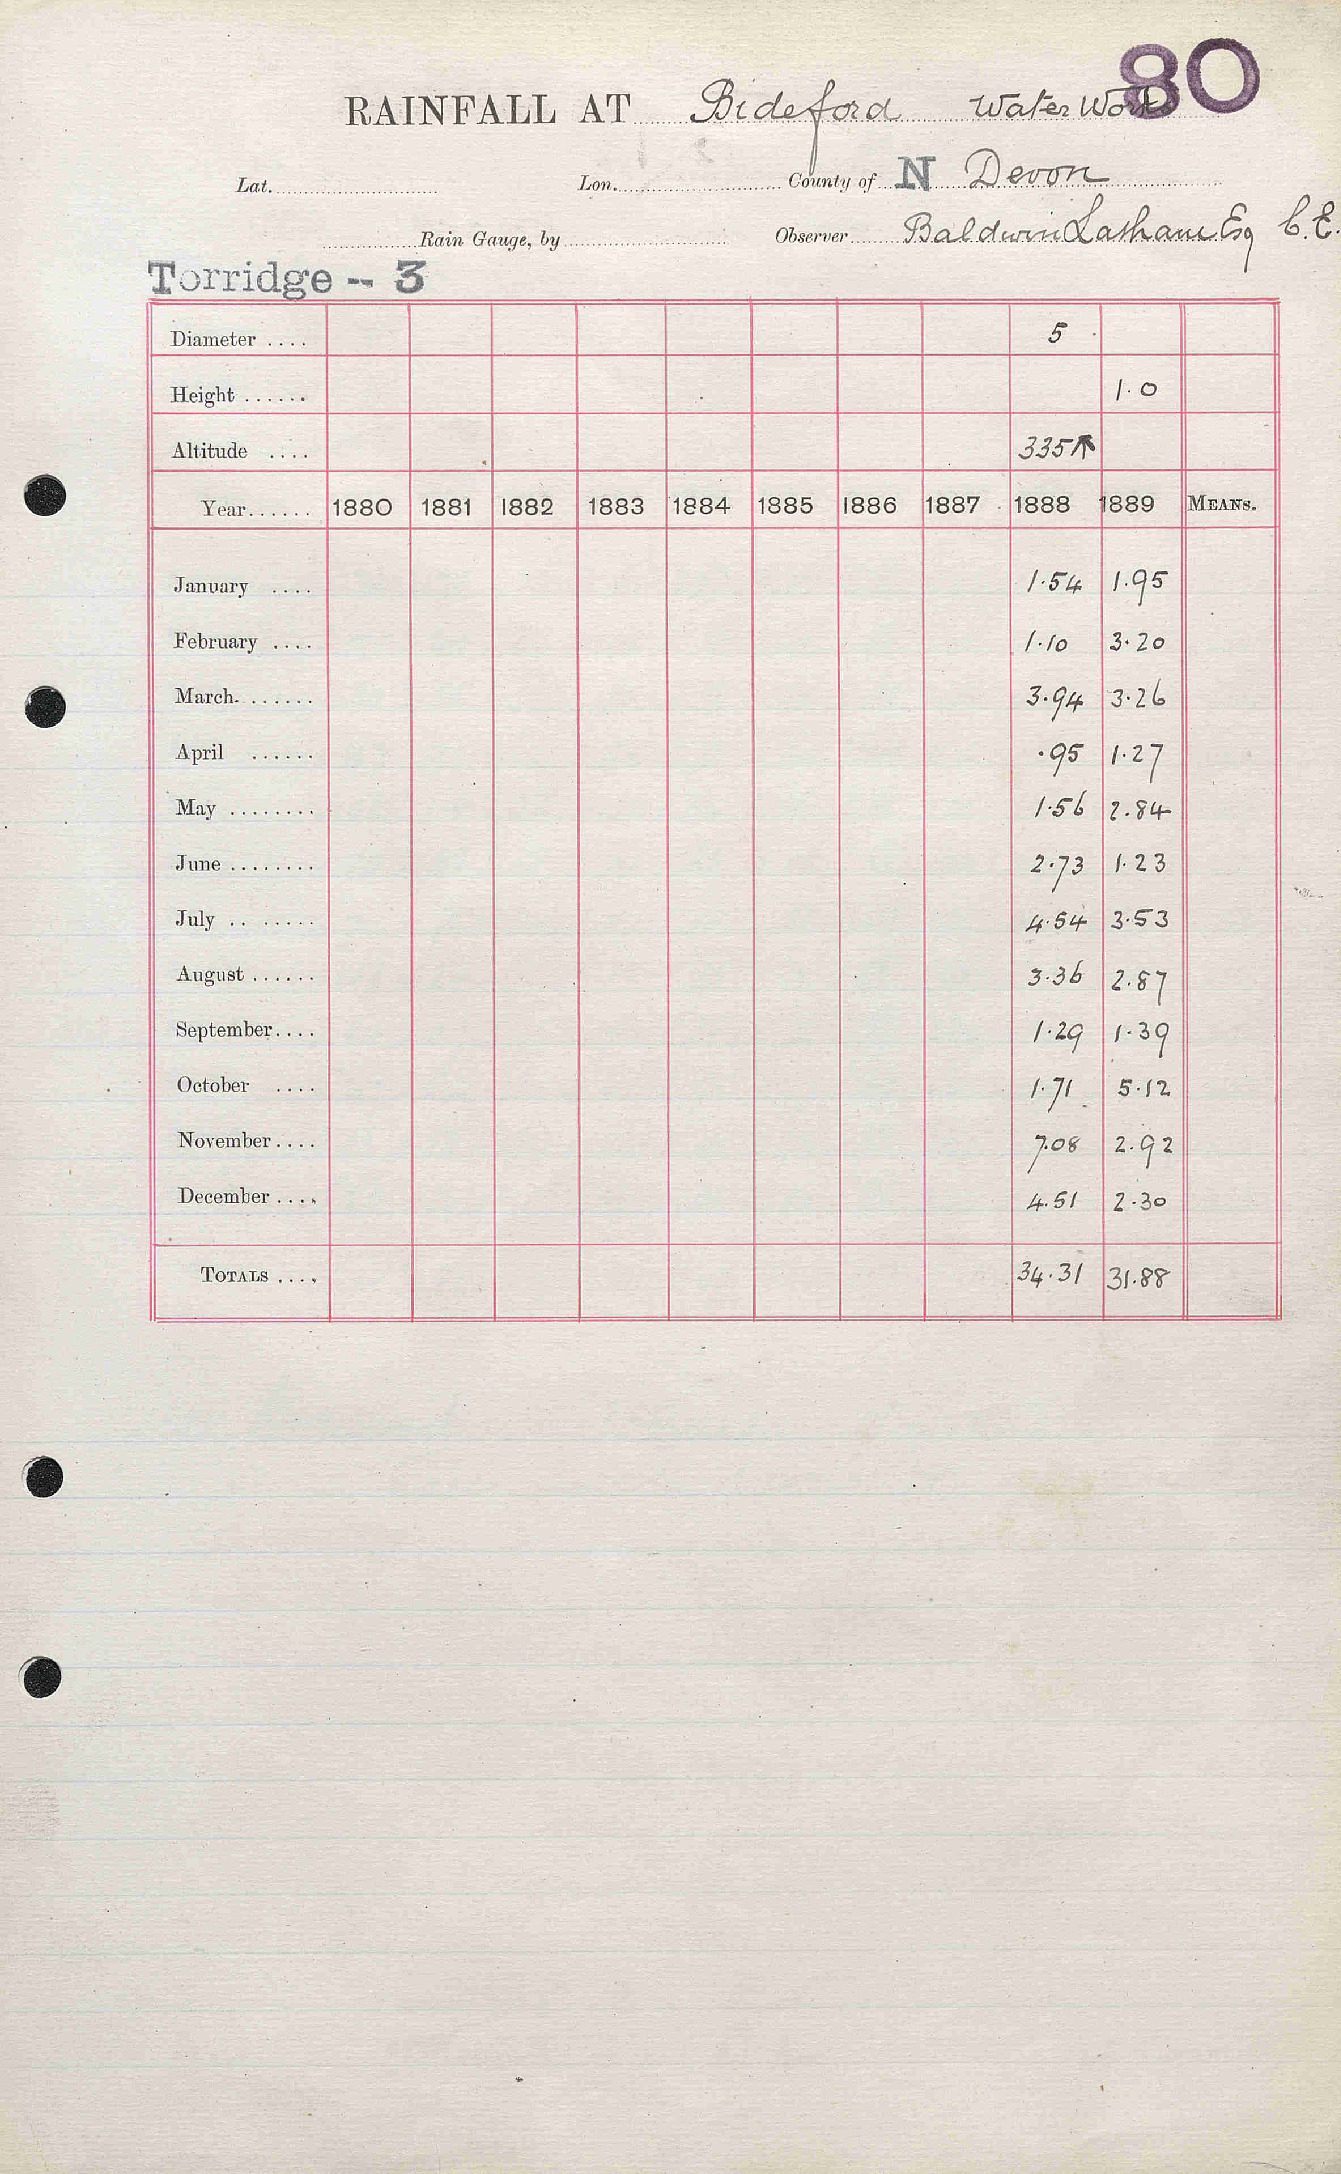 80
RAINFALL AT Bideford Water Works
Lat. Lon. County of N Devon
Rain Gauge, by Observer Baldwin Latham Esq C.E.
Torridge -- 3
Diameter .... 5
Height ...... 1.0
Altitude .... 335↑
Year...... 1880 1881 1882 1883 1884 1885 1886 1887 1888 1889 MEANS.
January .... 1.54 1.95
February .... 1.10 3.20
March. ...... 3.94 3.26
April ...... .95 1.27
May ........ 1.56 2.84
June ........ 2.73 1.23
July .. ...... 4.54 3.53
August ...... 3.36 2.87
September.... 1.29 1.39
October .... 1.71 5.12
November.... 7.08 2.92
December .... 4.51 2.30
TOTALS .... 34.31 31.88